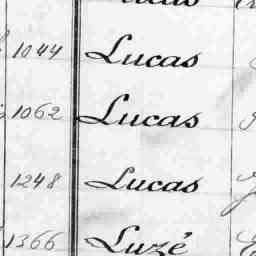 1044 Lucas
1062 Lucas
1248 Lucas
1366 Luzé